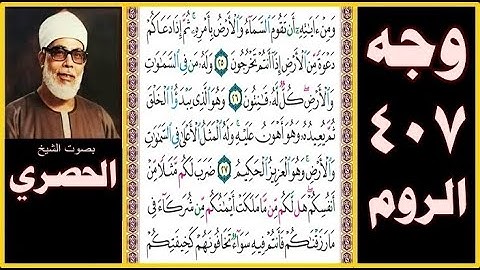 وجه
٤٠٧
الروم
وَمِنْ ءَايَٰتِهِۦٓ أَن تَقُومَ ٱلسَّمَآءُ وَٱلْأَرْضُ بِأَمْرِهِۦ ۚ ثُمَّ إِذَا دَعَاكُمْ
دَعْوَةً مِّنَ ٱلْأَرْضِ إِذَآ أَنتُمْ تَخْرُجُونَ ٢٥ وَلَهُۥ مَن فِى ٱلسَّمَٰوَٰتِ
وَٱلْأَرْضِ ۖ كُلٌّ لَّهُۥ قَٰنِتُونَ ٢٦ وَهُوَ ٱلَّذِى يَبْدَؤُا۟ ٱلْخَلْقَ
ثُمَّ يُعِيدُهُۥ وَهُوَ أَهْوَنُ عَلَيْهِ ۚ وَلَهُ ٱلْمَثَلُ ٱلْأَعْلَىٰ فِى ٱلسَّمَٰوَٰتِ
وَٱلْأَرْضِ ۚ وَهُوَ ٱلْعَزِيزُ ٱلْحَكِيمُ ٢٧ ضَرَبَ لَكُم مَّثَلًا مِّنْ
أَنفُسِكُمْ ۖ هَل لَّكُم مِّن مَّا مَلَكَتْ أَيْمَٰنُكُم مِّن شُرَكَآءَ فِى
مَا رَزَقْنَٰكُمْ فَأَنتُمْ فِيهِ سَوَآءٌ تَخَافُونَهُمْ كَخِيفَتِكُمْ
بصوت الشيخ
الحصري